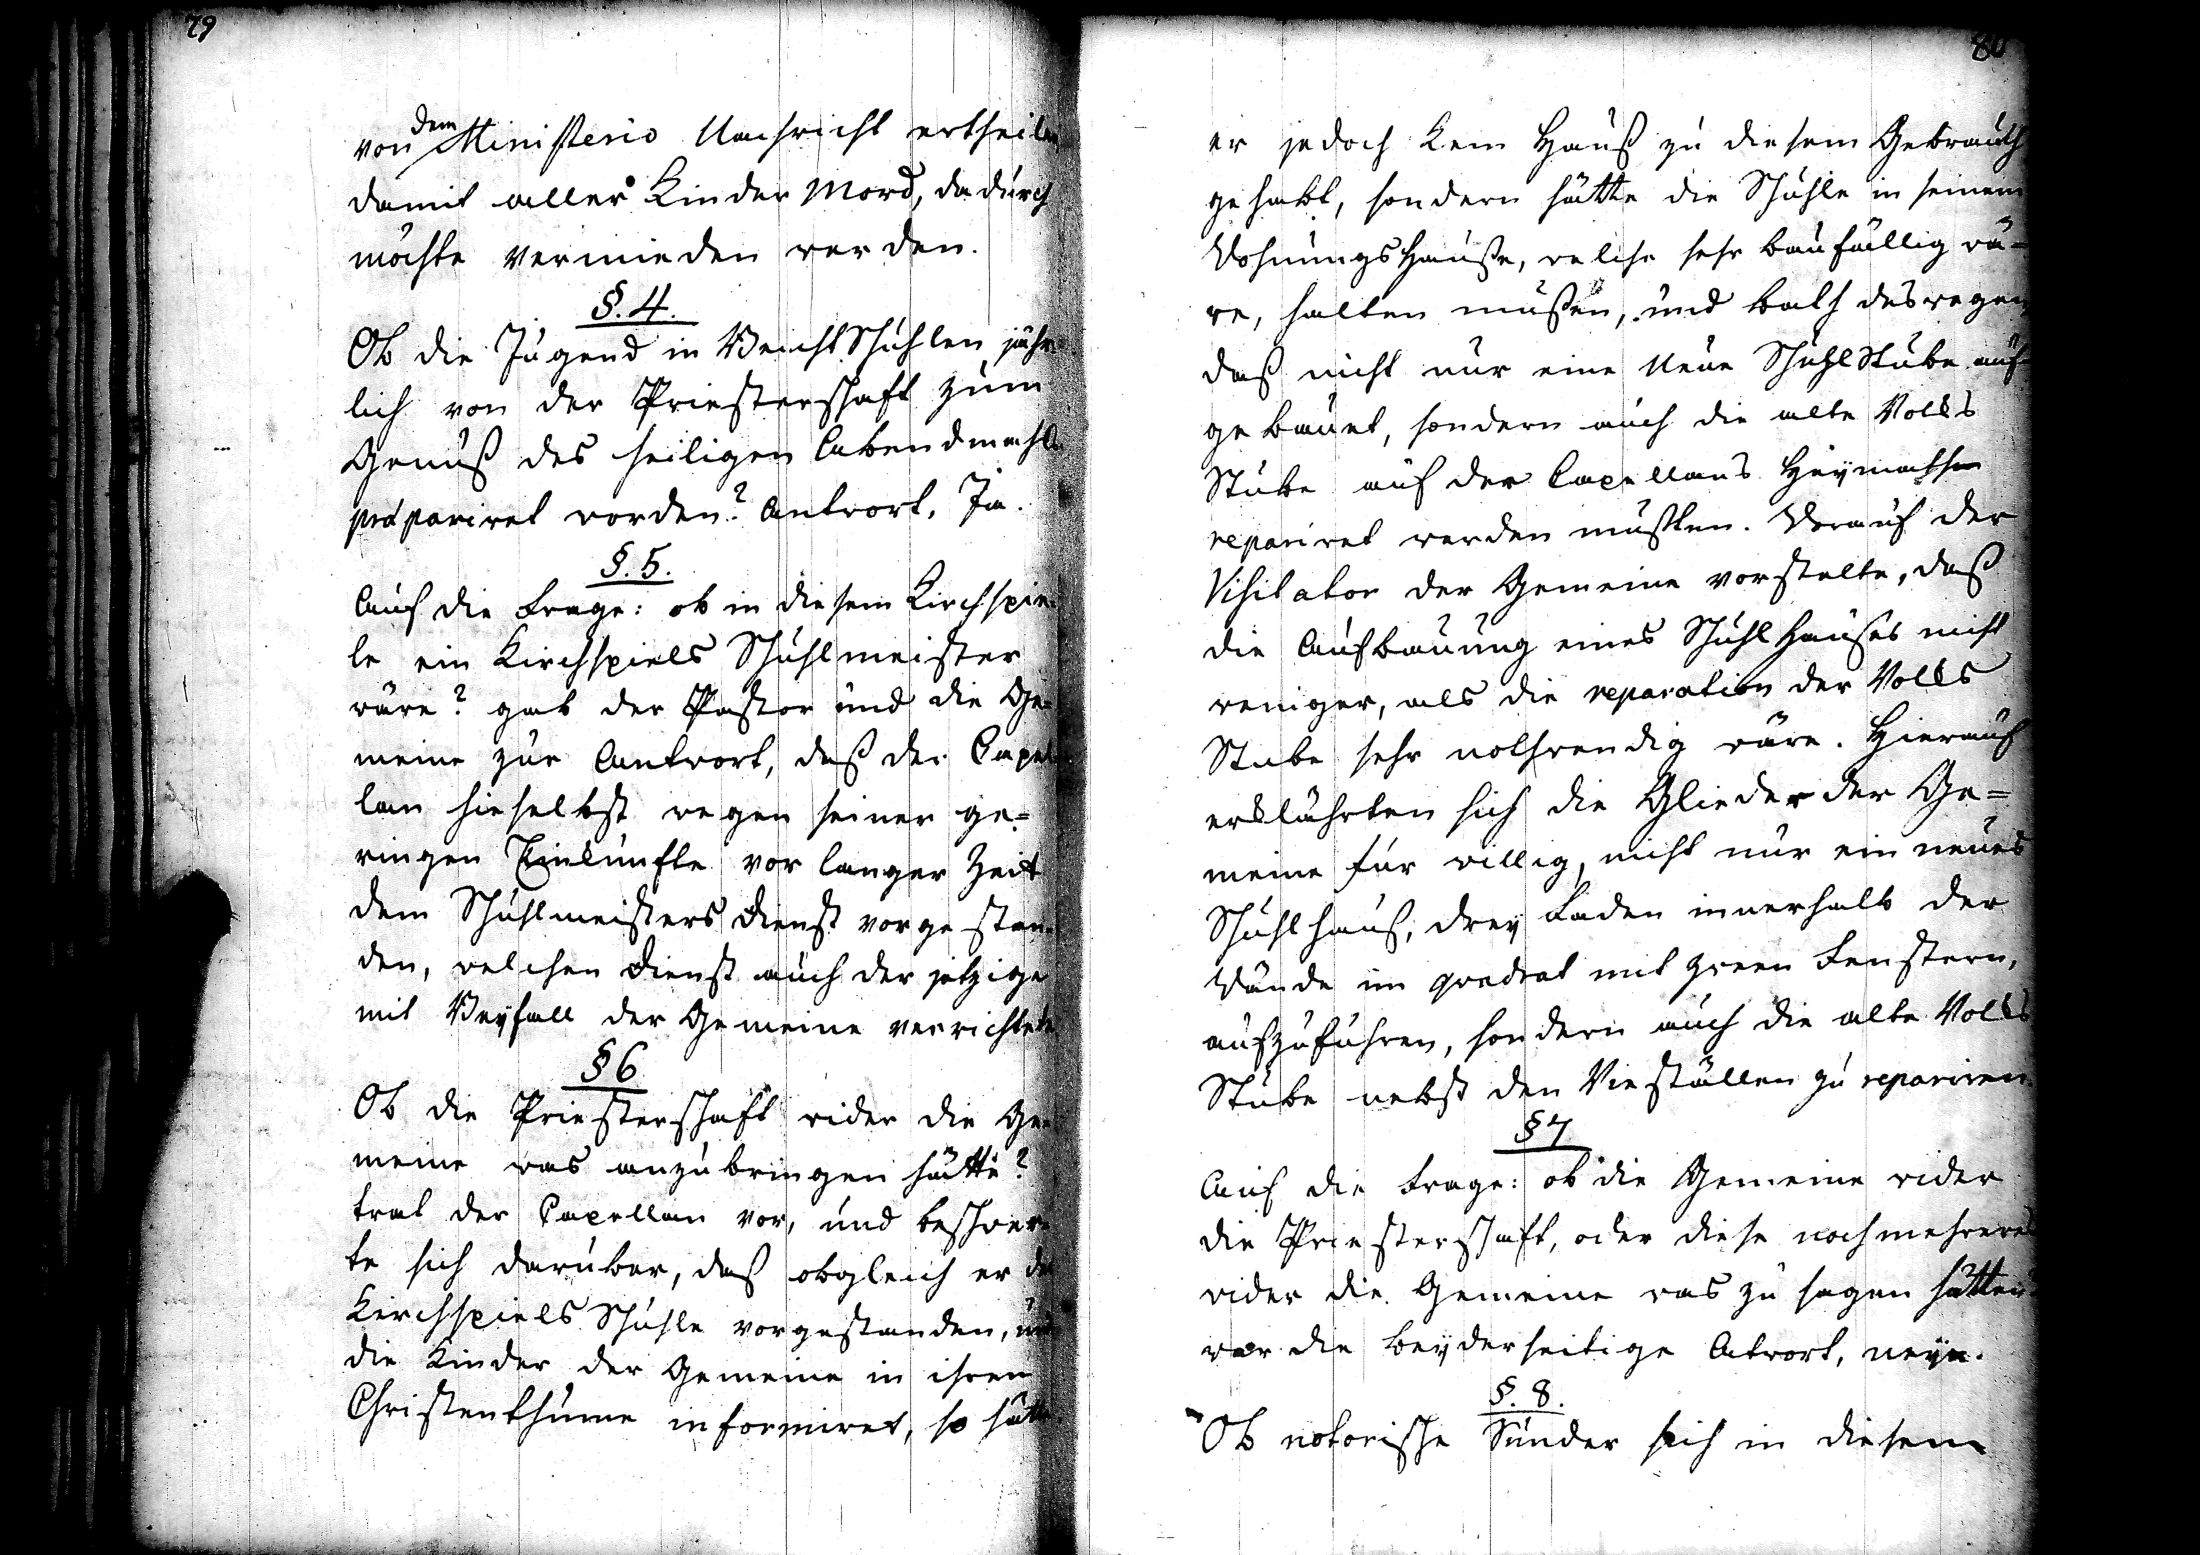 79
von dem Ministerio Nachricht ertheilen
damit aller Kinder Mord, dadurch
möchte vermieden werden.
§. 4.
Ob die Jugend in Beicht Schuhlen jähr-
lich von der Priesterschaft zum
Genuß des heiligen Abendmahls
præpariret worden? Antwort, Ja.
§. 5.
Auf die Frage: ob in diesem Kirchspie-
le ein Kirchspiels Schuhlmeister
wäre? gab der Pastor und die Ge-
meine zur Antwort, daß der Capel-
lan hieselbst wegen seiner ge-
ringen Einkünfte vor langer Zeit
dem Schuhlmeisters Dienst vorgestan-
den, welchen Dienst auch der jetzige
mit Beyfall der Gemeine verrichtete
§ 6
Ob die Priesterschaft wider die Ge-
meine was anzubringen hätte?
trat der Capellan vor, und beschwer-
te sich darüber, daß obgleich er der
Kirchspiels Schuhle vorgestanden, und
die Kinder der Gemeine in ihren
Christenthume informiret, so hätte
80
er jedoch kein Hauß zu diesem Gebrauch
gehabt, sondern hätte die Schuhle in seinem
Wohnungs Hauße, welche sehr baufällig wä-
re, halten mußen, und bath deswegen
daß nicht nur eine Neue Schuhl Stube auf
gebauet, sondern auch die alte Volks
Stube auf der Capellans Heymathen
repariret werden müßten. Worauf der
Visitator der Gemeine vorstelte, daß
die Aufbauung eines Schuhl Hauses nicht
weniger, als die reparation der Volks
Stube sehr nothwendig wäre. Hierauf
erklährten sich die Glieder der Ge-
meine für willig, nicht nur ein neues
Schuhlhauß, drey Faden innerhalb der
Wände im qvadrat mit zween Fenstern,
aufzuführen, sondern auch die alte Volks
Stube nebst den Vieställen zu repariren.
§ 7
Auf die Frage: ob die Gemeine wider
die Priesterschaft, oder diese noch mehreres
wider die Gemeine was zu sagen hätten?
war die beyderseitige Atwort, neyn.
§. 8.
Ob notorische Sünder sich in diesem